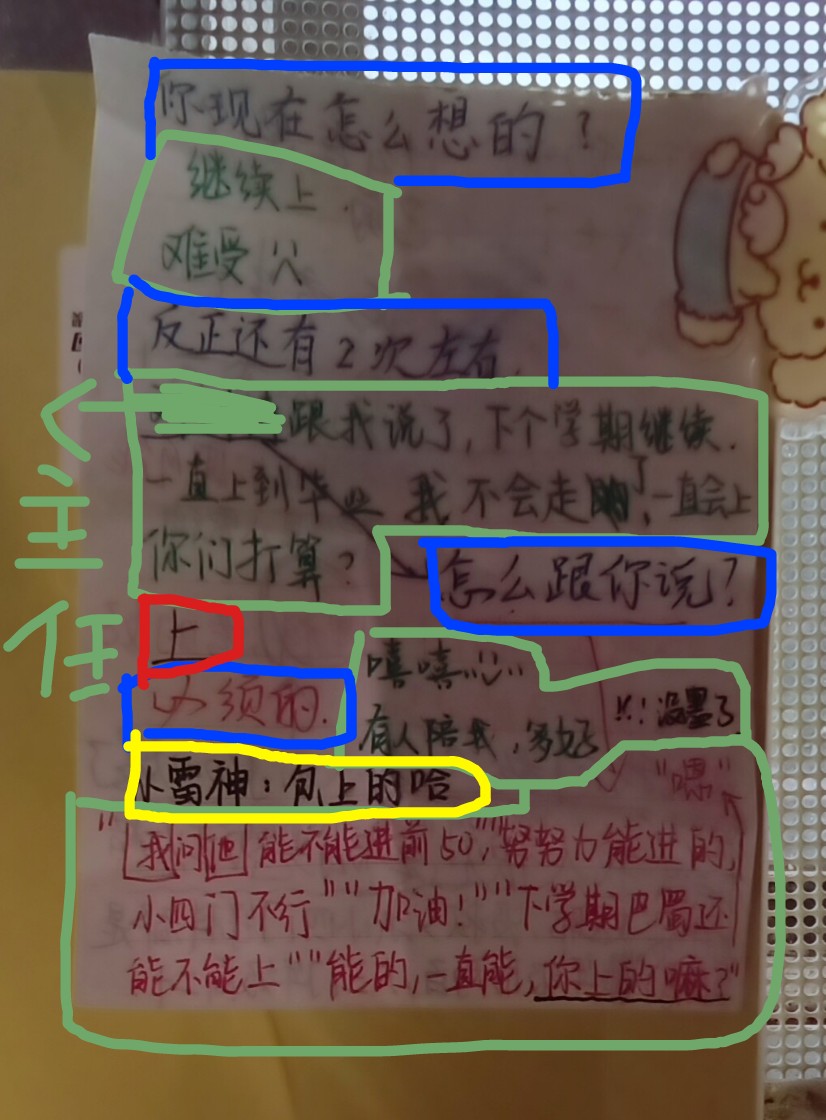 你现在怎么想的？
继续上
难受
反正还有2次左右.
跟我说了,下个学期继续.
一直上到毕业 我不会走,一直会上
你们打算？
怎么跟你说？
主任
上
必须的.
嘻嘻
有人陪我,多好
!!!没墨了
小雷神：包上的哈
"嗯"
"我问他能不能进前50""努努力能进的,
小四门不行""加油!""下学期巴蜀还
能不能上""能的,一直能,你上的嘛?"